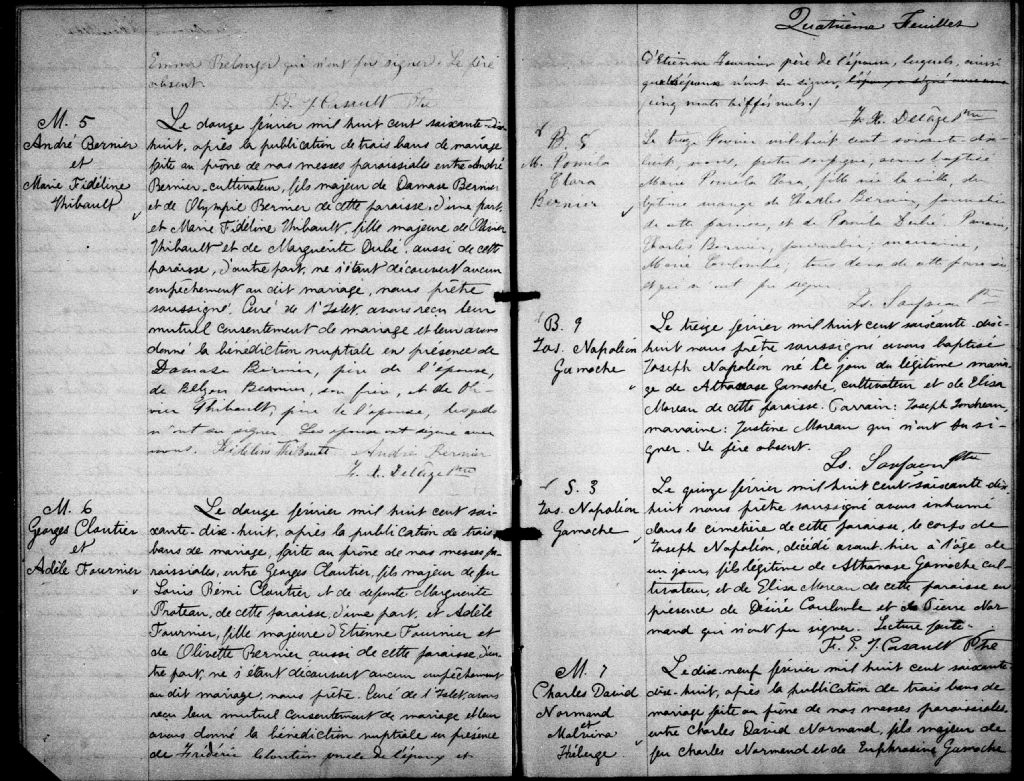 Emma Bélanger qui n'ont pu signer. Le père
absent.
F. E. J. Casault Ptre
M. 5
André Bernier
et
Marie Fidéline
Thibault
Le douze février mil huit cent soixante-dix-
huit, après la publication de trois bans de mariage
faite au prône de nos messes paroissiales entre André
Bernier, cultivateur, fils majeur de Damase Bernier
et de Olympie Bernier de cette paroisse d'une part,
et Marie Fidéline Thibault, fille majeure de Olivier
Thibault et de Marguerite Dubé aussi de cette
paroisse, d'autre part, ne s'étant découvert aucun
empêchement au dit mariage, nous prêtre
soussigné, Curé de l'Islet, avons reçu leur
mutuel consentement de mariage et leur avons
donné la bénédiction nuptiale en présence de
Damase Bernier, père de l'épouse,
de Bernier, son frère, et de Oli-
vier Thibault, père de l'épouse, lesquels
n'ont su signer. Les épous ont signé avec
nous. Fidéline Thibault André Bernier
Delâge Ptre
M. 6
Georges Cloutier
et
Adèle Fournier
Le douze février mil huit cent soi-
xante-dix-huit, après la publication de trois
bans de mariage, faite au prône de nos messes pa-
roissiales, entre Georges Cloutier, fils majeur de feu
Louis Rémi Cloutier et de defunte Marguerite
Proteau, de cette paroisse d'une part, et Adèle
Fournier, fille majeure d'Etienne Fournier et
de Olivette Bernier aussi de cette paroisse d'au-
tre part, ne s'étant découvert aucun empêchement
au dit mariage, nous prêtre Curé de l'Islet avons
reçu leur mutuel consentement de mariage et leur
avons donné la bénédiction nuptiale en présence
de Frédéric Cloutier oncle de l'époux et
Quatrième Feuillet
d'Etienne Fournier père de l'épouse, lesquels, ainsi
que l'épouse n'ont su signer, l'époux a signé avec nous
(cinq mots biffés nuls.)
Delâge Ptre
B. 8
M. Pomela
Clara
Bernier
Le treize Février mil huit cent soixante-dix-
huit, nous, prêtre soussigné, avons baptisé
Marie Pomela Clara, fille née la veille, du
légitime mariage de Charles Bernier, journalier
de cette paroisse, et de Pomela Dubé Parrain,
Charles Bernier, journalier; marraine,
Marie Coulombe; tous deux de cette paroisse
et qui n'ont pu signer.
Ls. Sanfaçon Ptre
B. 9
Jos. Napoléon
Gamache
Le treize février mil huit cent soixante-dix-
huit nous prêtre soussigné avons baptisé
Joseph Napoléon né ce jour du légitime maria-
ge de Athanase Gamache, cultivateur et de Elisa
Moreau de cette paroisse. Parrain: Joseph
marraine: Justine Moreau qui n'ont su si-
gner. Le père absent.
Ls. Sanfaçon Ptre
S. 3
Jos. Napoléon
Gamache
Le quinze février mil huit cent soixante dix-
huit nous prêtre soussigné avons inhumé
dans le cimetière de cette paroisse, le corps de
Joseph Napoléon, décédé avant-hier à l'âge de
un jour, fils légitime de Athanase Gamache cul-
tivateur, et de Elisa Moreau de cette paroisse en
présence de Désiré Coulombe et de Pierre Nor-
mand qui n'ont pu signer. Lecture faite.
F. E. J. Casault Ptre
M. 7
Charles David
Normand
et
Malvina
Théberge
Le dix-neuf février mil huit cent soixante-
dix-huit, après la publication de trois bans de
mariage faite au prône de nos messes paroissiales
entre Charles David Normand, fils majeur de
feu Charles Normand et de Euphrosine Gamache